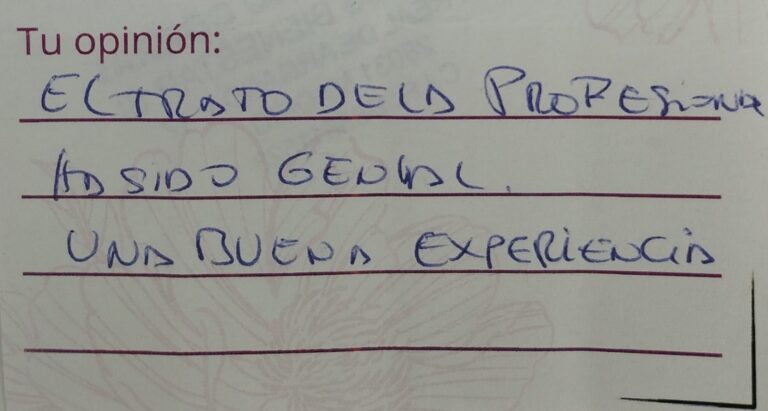 Tu opinión:
EL TRATO DE LA PROFESIONAL
HA SIDO GENIAL.
UNA BUENA EXPERIENCIA